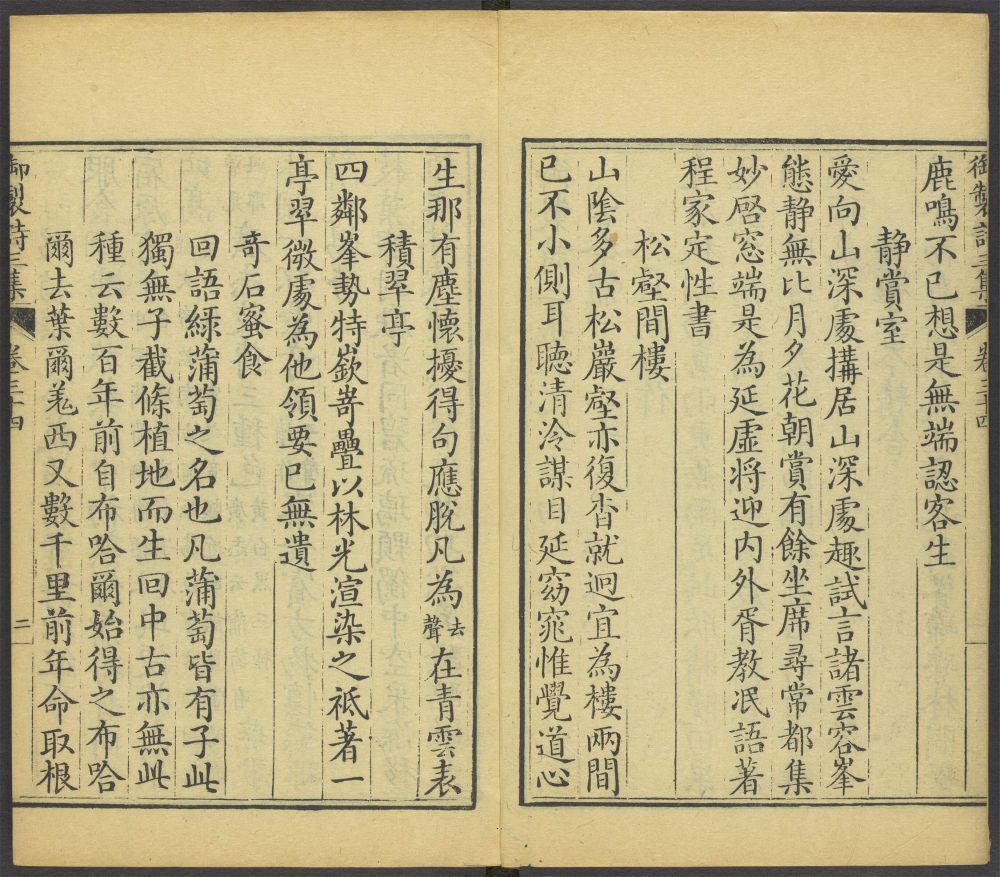 御製詩三集 卷三十四
鹿鳴不已想是無端認客生
静賞室
愛向山深處搆居山深處趣試言諸雲容峯
態静無比月夕花朝賞有餘坐席尋常都集
妙啓窓端是為延虛将迎内外胥教泯語著
程家定性書
松壑間樓
山陰多古松巖壑亦復杳就迥宜為樓兩間
已不小側耳聽清泠謀目延窈窕惟覺道心
生那有塵懷擾得句應脫凡為去聲在青雲表
積翠亭
四鄰峯勢特嶔嵜疊以林光渲染之祗著一
亭翠微處為他領要已無遺
奇石蜜食
回語綠蒲萄之名也凡蒲萄皆有子此
獨無子截條植地而生回中古亦無此
種云數百年前自布哈爾始得之布哈
爾去葉爾羌西又數千里前年命取根
御製詩三集 卷三十四 二